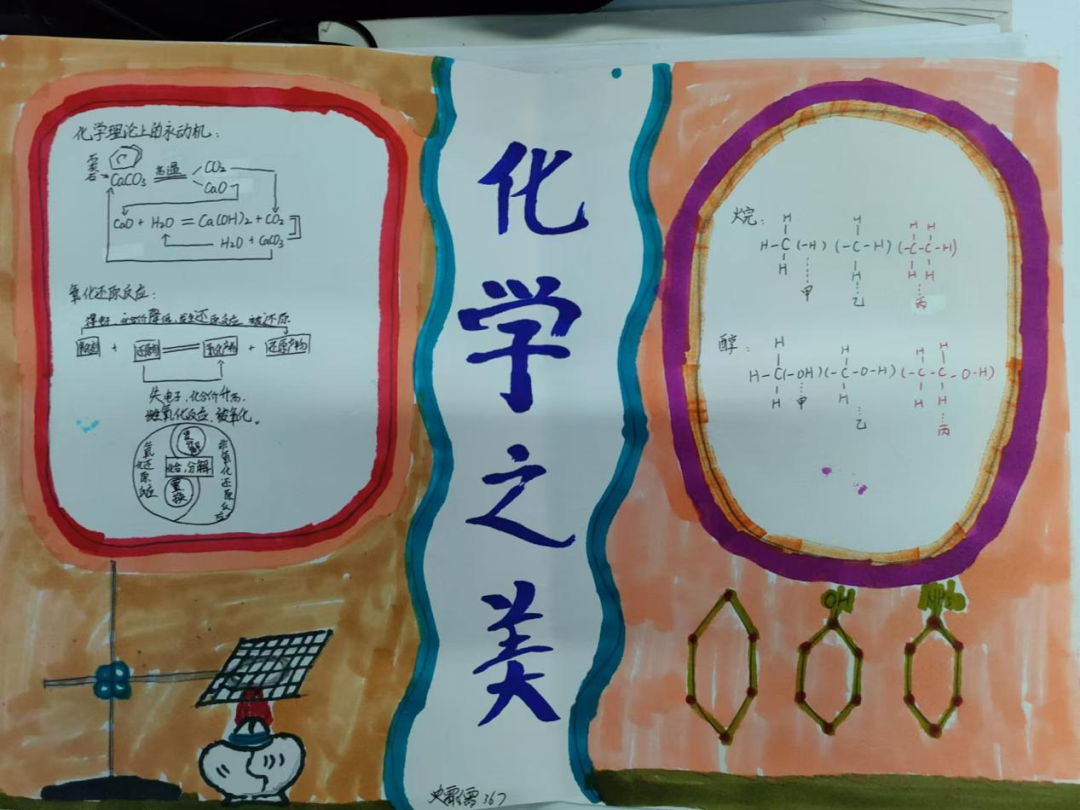 化学理论上的永动机：
CaCO₃ 高温 CO₂
CaO
CaO + H₂O = Ca(OH)₂ + CO₂
H₂O + CaCO₃
氧化还原反应：
得电子，化合价降低，发生还原反应，被还原
氧化剂 + 还原剂 氧化产物 + 还原产物
失电子，化合价升高，
发生氧化反应，被氧化。
氧化还原反应
化合，分解
置换
非氧化还原反应
化学之美
烷：
H
H-C(-H)(-C-H)(-C-C-H)
H
甲
乙
丙
醇：
H-C(-OH)(-C-O-H)(-C-C-O-H)
甲
乙
丙
OH
367